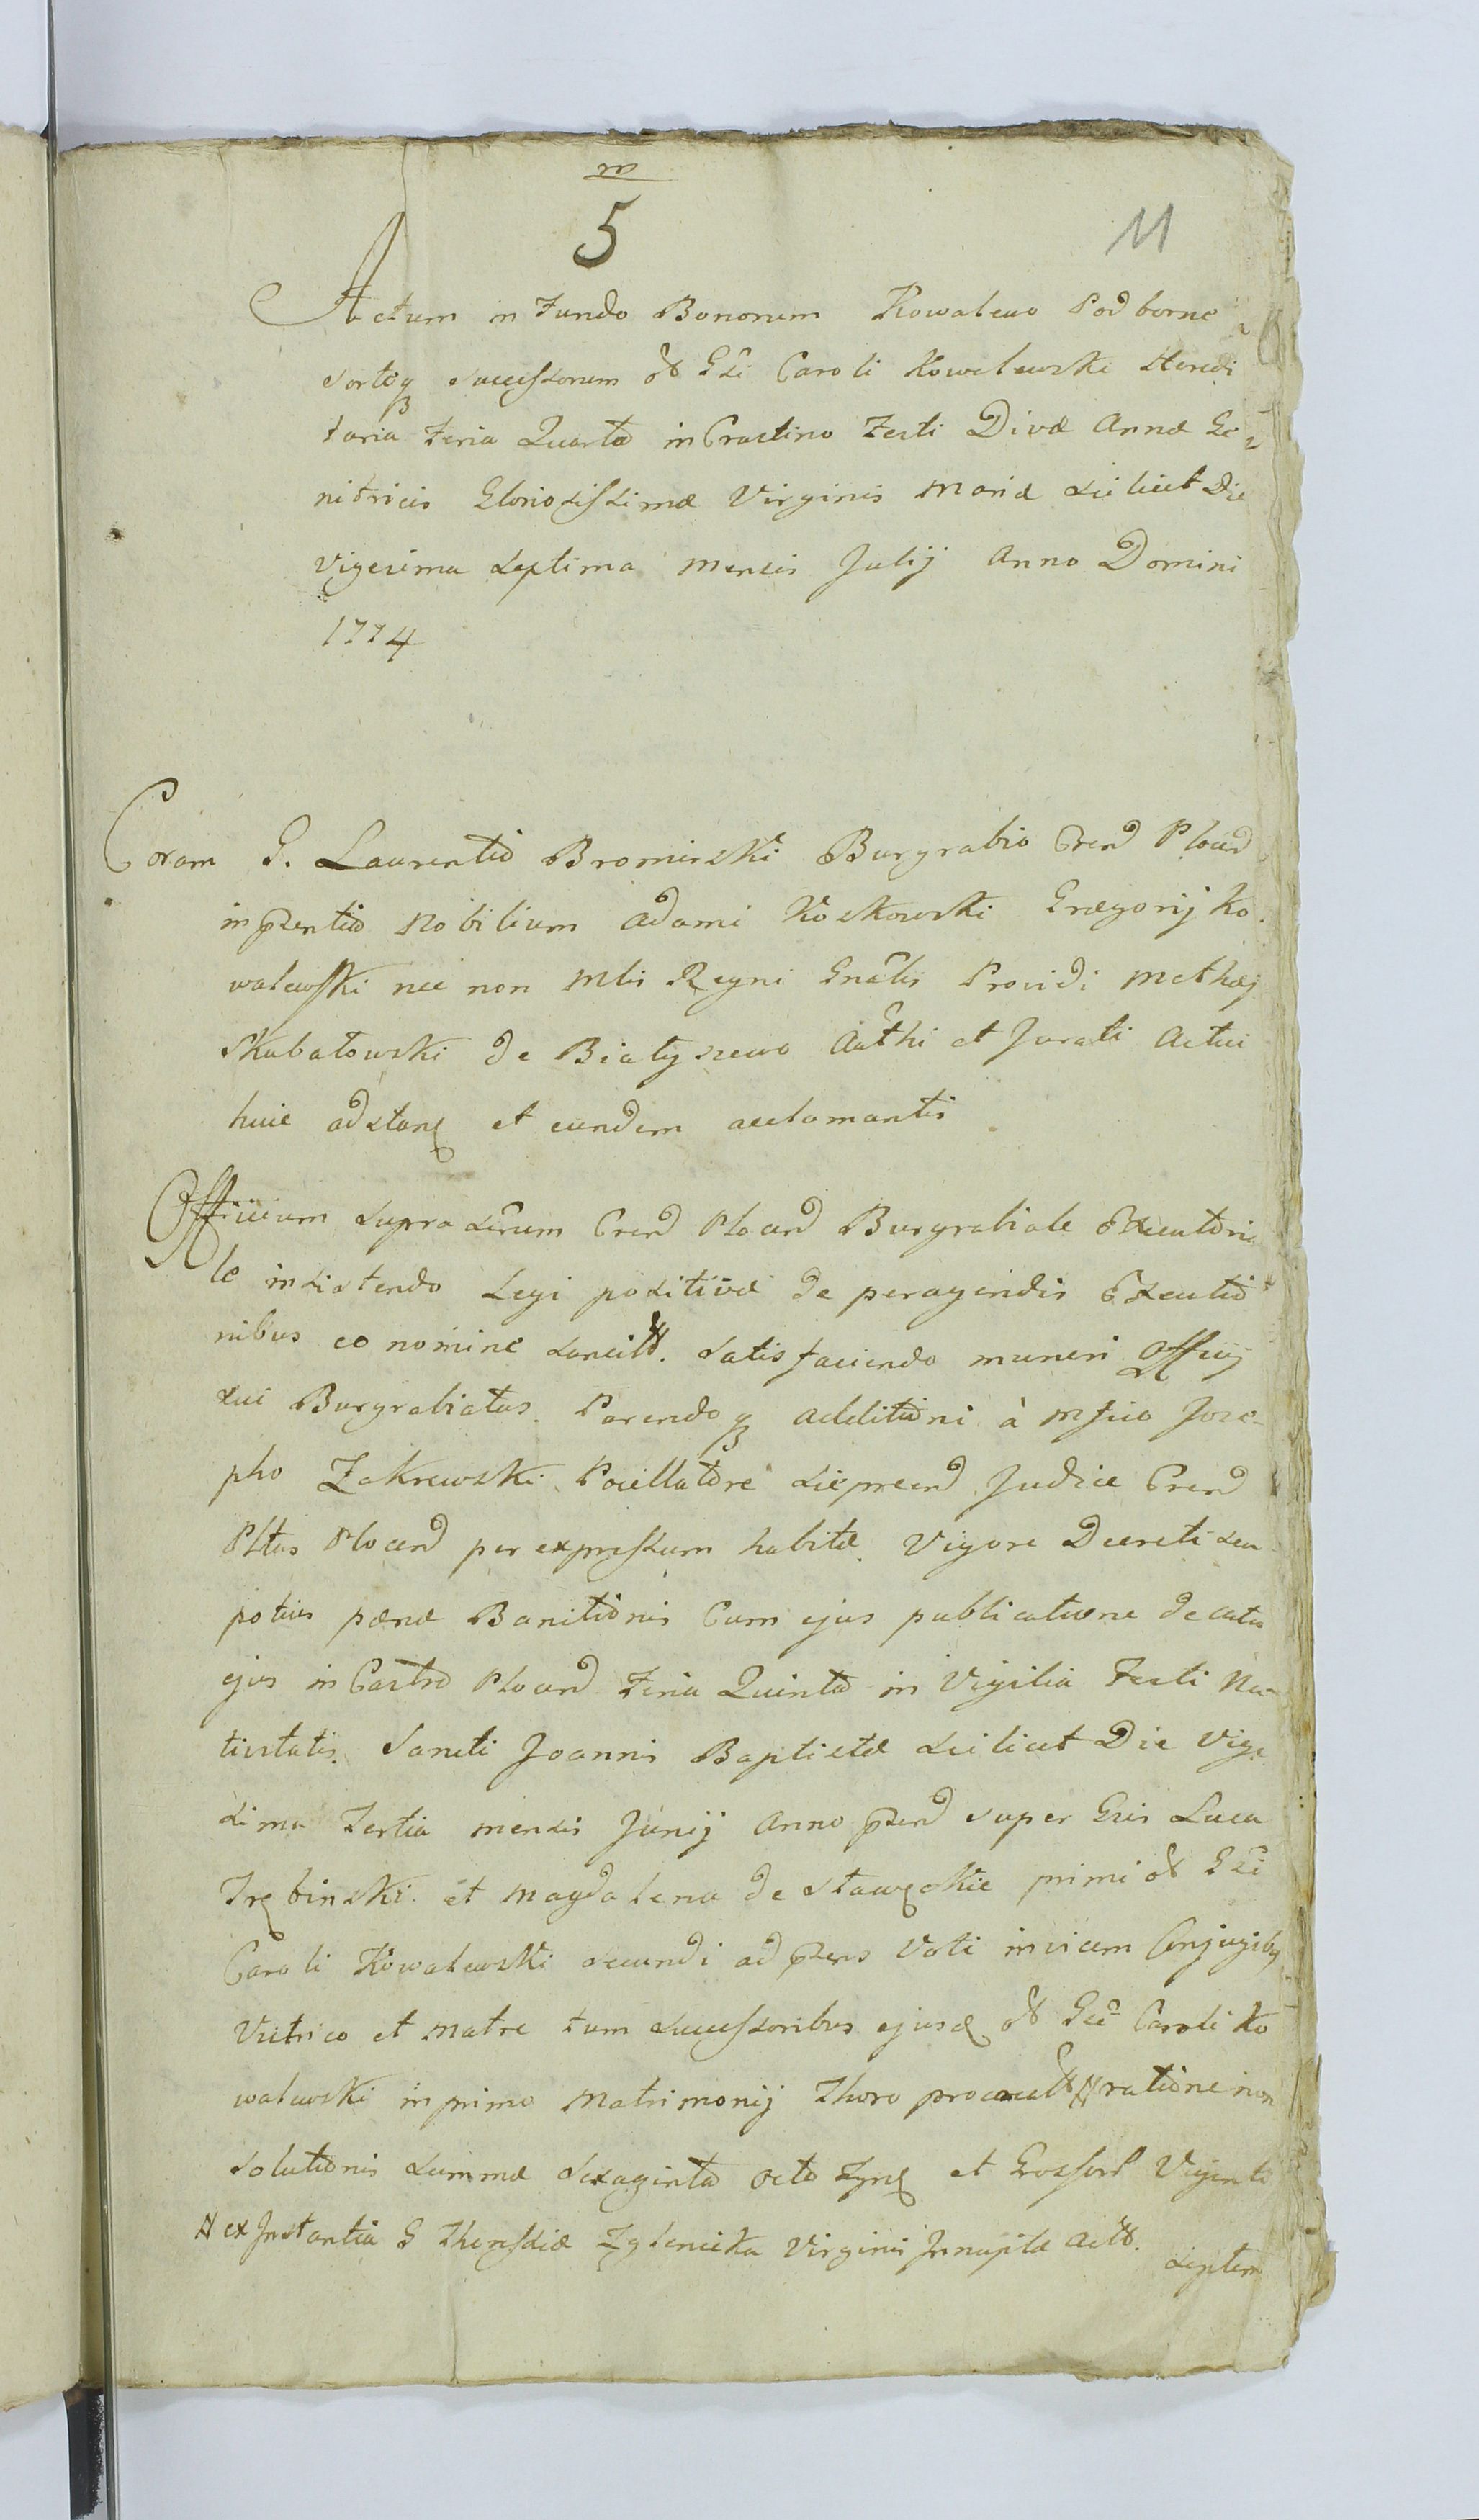 m
5
11
Actum in Fundo Bonorum Kowalewo Podborne
Sorteq successorum ol Gsi Caroli Kowalewski Heredi
taria Feria Quarta in Crastino Festi Divæ Annæ Ge
nitricis Gloriosissimæ Virginis Mariæ scilicet Die
Vigesima Septima Mensis Julij Anno Domini
1774
Coram G. Laurentio Bromirski Burgrabio Cren Plocen
in pzentia Nobilium Adami Koskowski Grægorij Ko
walewski nec non Mlis Regni Gnalis Providi Mathæj
Skubatowski de Białyszewo Authi et Jurati Actui
huic adstanę et eundem acclamantis
Officium supra scrum Cren Plocen Burgrabiale Executoria
le insistendo Legi positivæ de peragendis Executio
nibus eo nomine sancitæ. satisfaciendo muneri Officij
sui Burgrabiatus. Parendoq additioni à Mfico Jose-
pho Zakrewski Pocillatore Sieprcen Judice Cren
Pltus Plocen per expressum habitæ. Vigore Decreti seu
potius pænæ Banitionis Cum ejus publicatione de actu
ejus in Castro Plocen Feria Quinta in Vigilia Festi Na
tivitatis Sancti Joannis Baptistæ scilicet Die Vige
sima Tertia Mensis Junij Anno pzen super Gsis Luca
Trębinski et Magdalena de Stawęckie primi ol Gsi
Caroli Kowalewski secundi ad pzens Voti invicem Conjugibq
Vitrico et Matre tum successoribus ejusd ol Gsi Caroli Ko
walewski in primo Matrimonij Thoro procreat # ratione non
solutionis summæ Sexaginta octo Tynf et Grossorl Viginti
# ex Instantia G Theressiæ Zglenicka Virginis Innuptæ Act.
septem